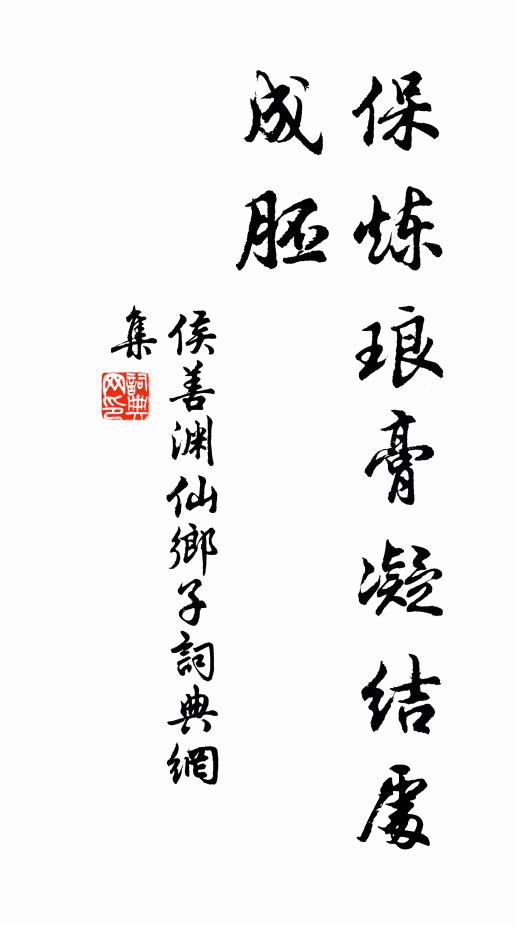 保炼琅膏凝结處
成胚
侯善渊仙鄉子詞典網
集
詞典
网印